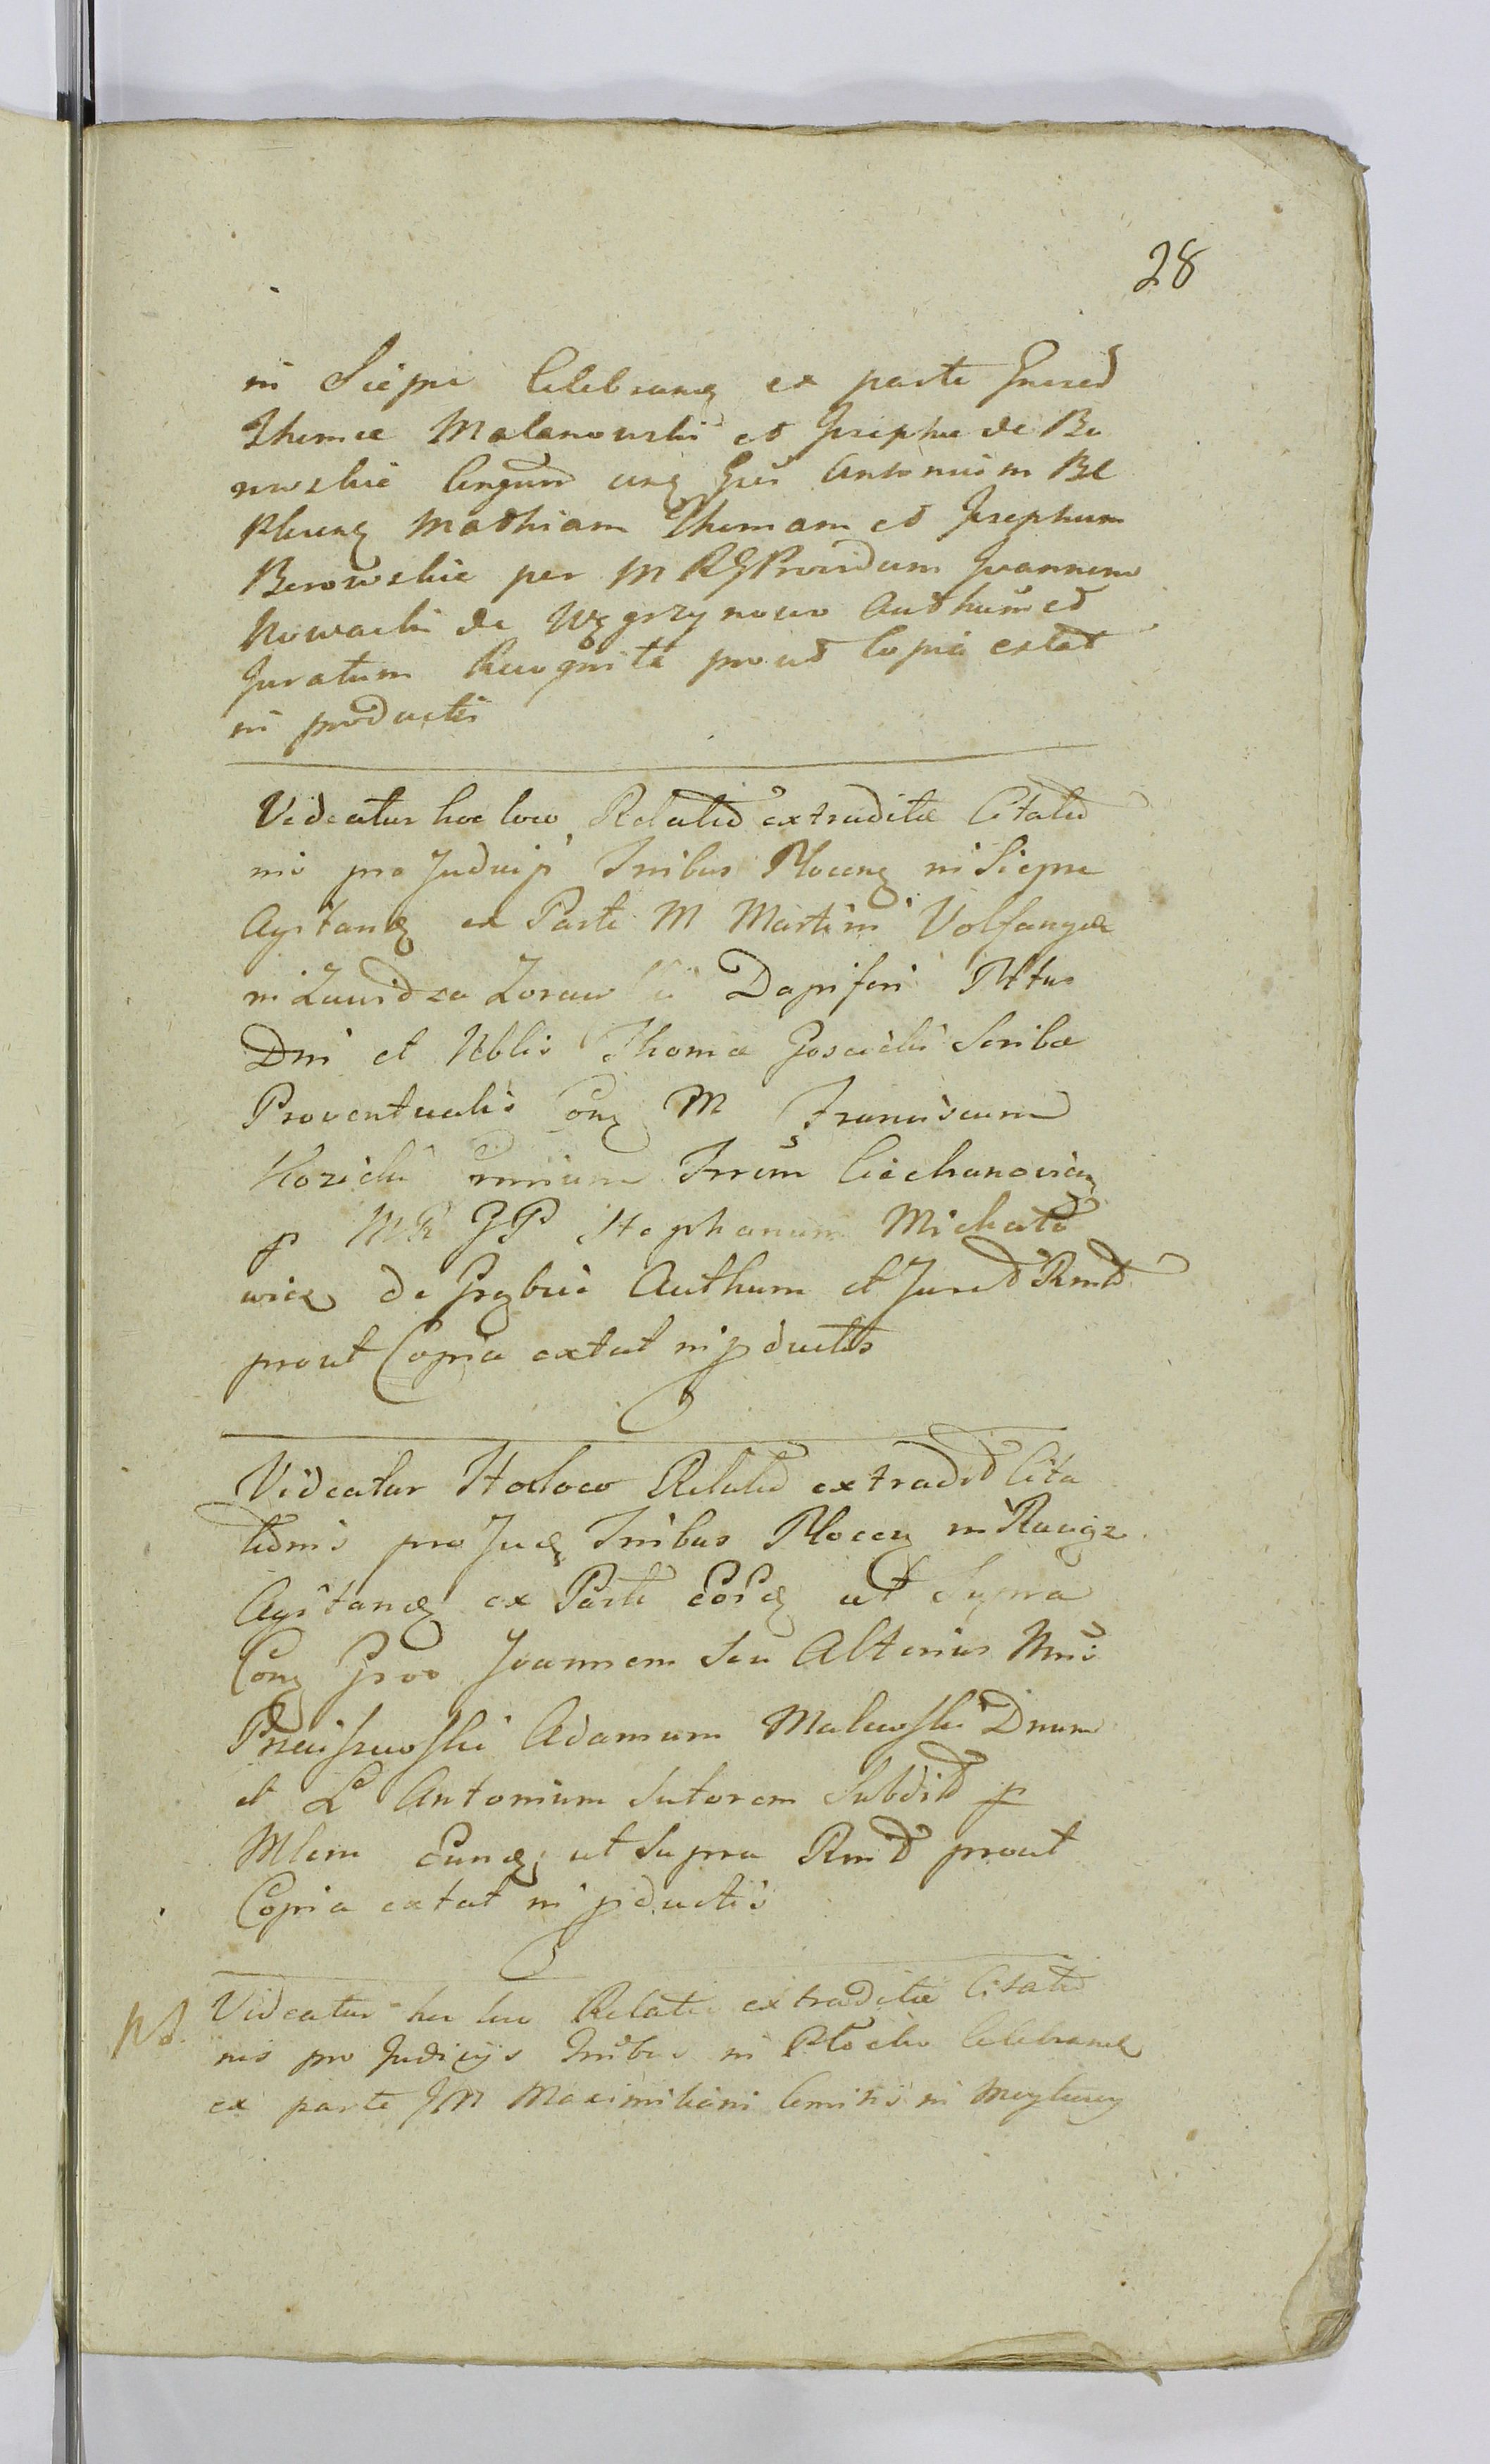 28
in Siepu Celebranɖ ex parte Gnered
Thomæ Malanowski et Josephæ de Bo
rowskie Conjugum Antonium
Mathiam Thomam et Josephum
Borowskie per M R G Providum Joannem
Nowacki de Węgrzynowo Authum et
Juratum Recognita prout Copia extat
in productis
Videatur hoc loco Relatio extraditæ Citatio
nis pro Judicijs Tribus Plocenɀ in Siepu
Agitanɖ ex Parte M Martini Volfangæ
in Zawidza Dapiferi
Dni et Nblis Thomæ Goscicki Scribæ
Proventualis Conɀ M Franciscum
Kozicki Trrum Ciechanovien
p M R G P Stephanum Michało
wicz de Grzybice Authum et Jurat Rmt
prout Copia extat in pductis
Videatur Hocloco Relatio extradit Cita
tionis pro Juɖ Tribus Plocen in Raciąz
Agitanɖ ex Parte eorɖ ut Supra
Conɀ Groo Joannem Seu Alterius Nnis
Adamum Dnum
et L Antonium Sutorem Subdit p
Mlem eunɖ ut Supra Rmt prout
Copia extat in pductis
Videatur hoc loco Relatio extraditæ Citatio
nis pro Judicijs Tribus in Płocko Celebranɖ
ex parte JM Maximiliani Comitis in